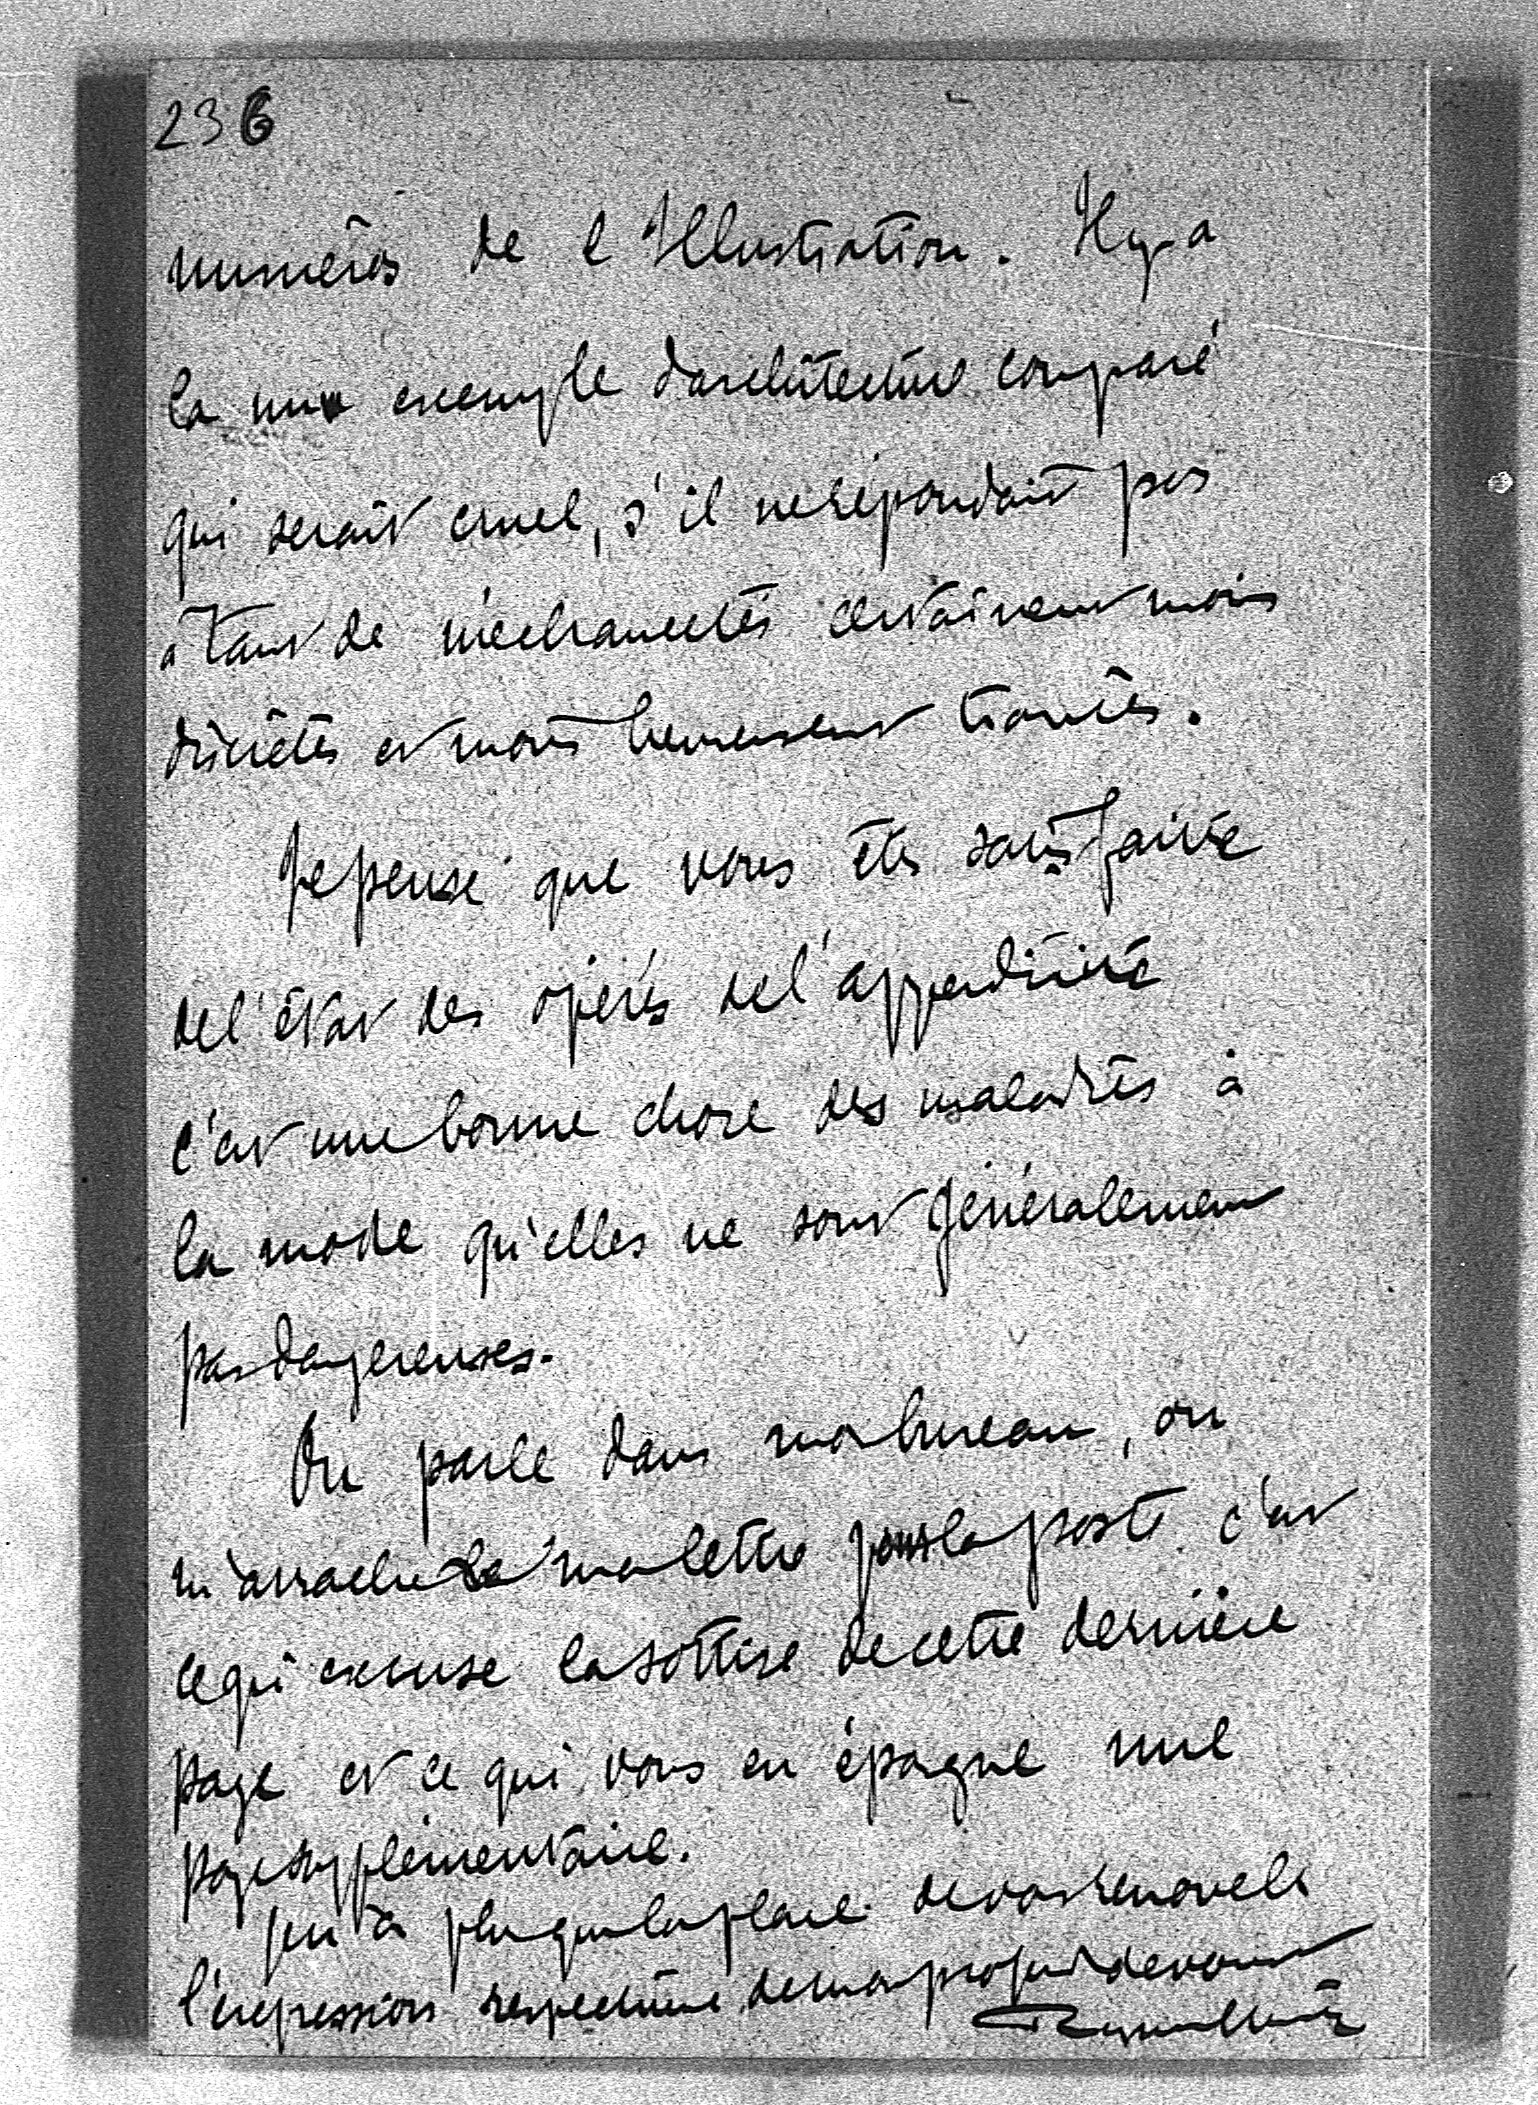 236
numéros de l'Illustration. Il y a
la un exemple d'architecture comparé
qui serait cruel, s'il ne répondait pas
à tant de méchancetés certainement moins
discrètes et moins heureusement trouvées.
Je pense que vous êtes satisfaite
de l'état des opérés de l'appendicite
c'est une bonne chose des maladies à
la mode qu'elles ne sont généralement
pas dangereuses.
On parle dans mon bureau, on
m'arrache ma lettre pour la poste c'est
ce qui excuse la sottise de cette dernière
page et ce qui vous en épargne une
page supplémentaire.
je n'ai plus que la place de vous renouveler
l'expression respectueuse de mon profond dévouement